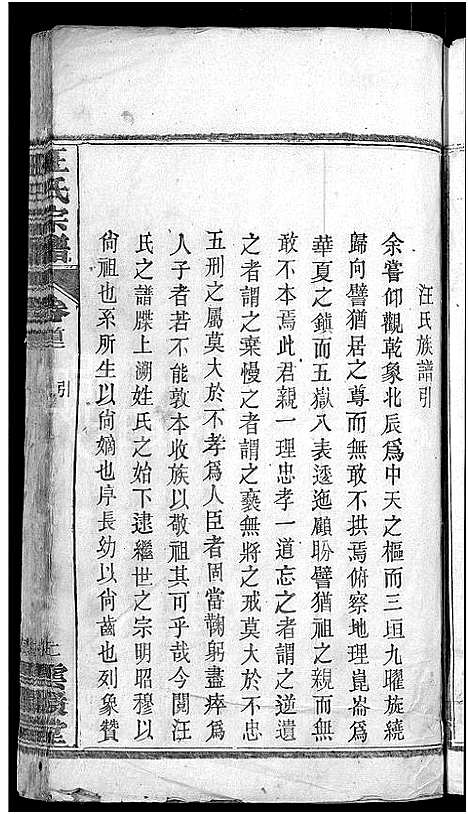 汪氏族譜引
余嘗仰觀乾象北辰爲中天之樞而三垣九曜族繞
歸向譬猶居之尊而無敢不拱焉俯察地理崑崙爲
華夏之鎮而五嶽八表逶迤顧盼譬猶祖之親而無
敢不本焉此君親一理忠孝一道忘之者謂之逆遺
之者謂之棄慢之者謂之褻無將之戒莫大於不忠
五刑之屬莫大於不孝爲人臣者固當鞠躬盡瘁爲
人子者若不能敦本收族以敬祖其可乎哉今閱汪
氏之譜牒上溯姓氏之始下逮繼世之宗明昭穆以
尙祖也系所生以尙嫡也序長幼以尙齒也列象贊
汪氏宗譜
卷首
引
二